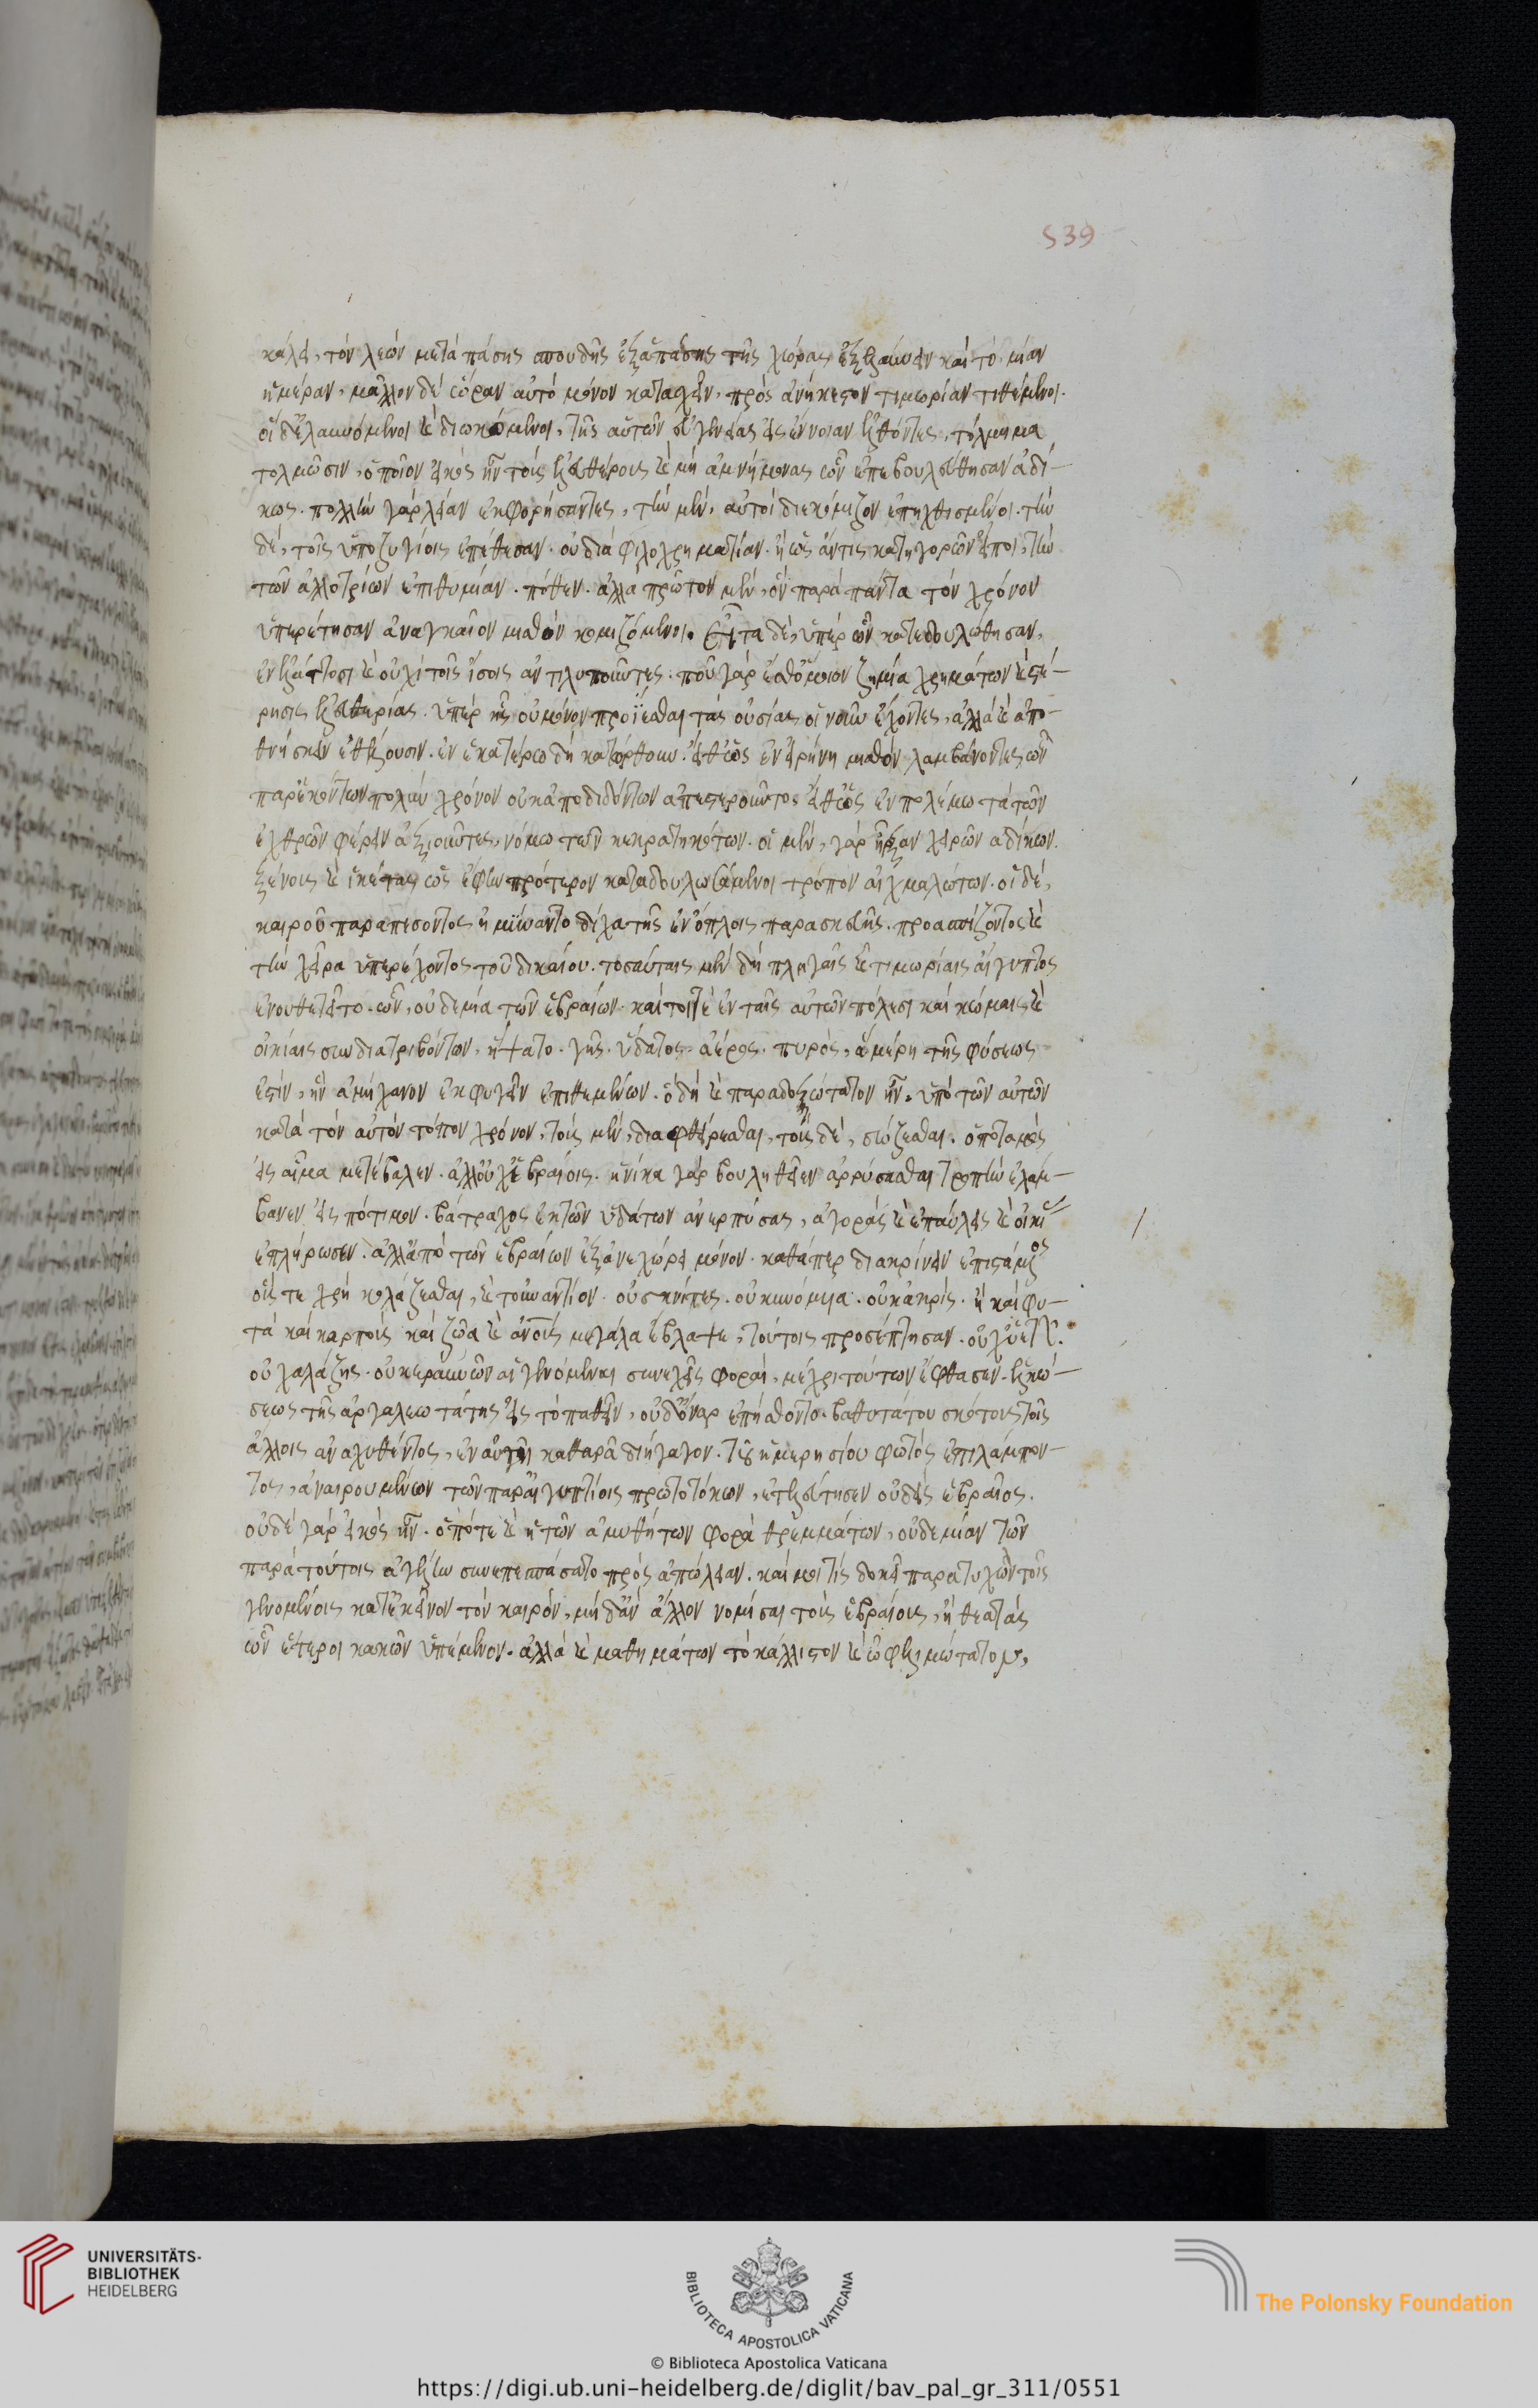 κάλει, τὸν λεὼν μετὰ πάσης σπουδῆς ἐξ ἁπάσης τῆς χώρας ἐξελαύνειν καὶ τὸ μίαν
ἡμέραν, μᾶλλον δὲ ὥραν αὐτὸ μόνον κατασχεῖν, πρὸς ἀνήκεστον τιμωρίαν τιθέμενοι.
οἱ δ' ἐλαυνόμενοι καὶ διωκόμενοι, τῆς αὑτῶν εὐγενείας εἰς ἔννοιαν ἐλθόντες, τόλμημα
τολμῶσιν, ὁποῖον εἰκὸς ἦν τοὺς ἐλευθέρους καὶ μὴ ἀμνήμονας ὧν ἐπεβουλεύθησαν ἀδί-
κως. πολλὴν γὰρ λείαν ἐκφορήσαντες, τὴν μὲν, αὐτοὶ διεκόμιζον ἐπηχθισμένοι. τὴν
δὲ, τοῖς ὑποζυγίοις ἐπέθεσαν. οὐ διὰ φιλοχρηματίαν. ἢ ὡς ἄν τις κατηγορῶν εἴποι, τὴν
τῶν ἀλλοτρίων ἐπιθυμίαν. πόθεν. ἀλλὰ πρῶτον μὲν, ὧν παρὰ πάντα τὸν χρόνον
ὑπηρέτησαν ἀναγκαῖον μισθὸν κομιζόμενοι. Εἶτα δὲ, ὑπὲρ ὧν κατεδουλώθησαν,
ἐν ἐλάττοσι καὶ οὐχὶ τοῖς ἴσοις ἀντιλυποῦντες. ποῦ γάρ ἐσθ' ὅμοιον ζημία χρημάτων καὶ στέ-
ρησις ἐλευθερίας. ὑπὲρ ἧς οὐ μόνον προΐεσθαι τὰς οὐσίας οἱ νοῦν ἔχοντες, ἀλλὰ καὶ ἀπο-
θνήσκειν ἐθέλουσιν. ἐν ἑκατέρω δὴ κατώρθουν. εἴθ' ὡς ἐν εἰρήνη μισθὸν λαμβάνοντες ὧν
παρ' ἑκόντων πολὺν χρόνον οὐκ ἀποδιδόντων ἀπεστεροῦντο. εἴθ' ὡς ἐν πολέμω τὰ τῶν
ἐχθρῶν φέρειν ἀξιοῦντες, νόμω τῶν κεκρατηκότων. οἱ μὲν, γὰρ ἦρξαν χειρῶν ἀδίκων.
ξένους καὶ ἱκέτας ὡς ἔφην πρότερον καταδουλωσάμενοι τρόπον αἰχμαλώτων. οἱ δὲ,
καιροῦ παραπεσόντος ἠμύναντο δίχα τῆς ἐν ὅπλοις παρασκευῆς. προασπίζοντος καὶ
τὴν χεῖρα ὑπερέχοντος τοῦ δικαίου. τοσαύταις μὲν δὴ πληγαῖς καὶ τιμωρίαις αἴγυπτος
ἐνουθετεῖτο. ὧν, οὐδεμία τῶν ἑβραίων. καίτοι γε ἐν ταῖς αὐτῶν πόλεσι καὶ κώμαις καὶ
οἰκίαις συνδιατριβόντων, ἥψατο. γῆς. ὕδατος. ἀέρος. πυρὸς, ἃ μέρη τῆς φύσεως
ἐστὶν, ἣν ἀμήχανον ἐκφυγεῖν ἐπιθεμένων. ὃ δὴ καὶ παραδοξώτατον ἦν. ὑπὸ τῶν αὐτῶν
κατὰ τὸν αὐτὸν τόπον χρόνον, τοὺς μὲν, διαφθείρεσθαι, τοὺς δὲ, σώζεσθαι. ὁ ποταμὸς
εἰς αἷμα μετέβαλεν. ἀλλ' οὐχ' ἑβραίοις. ἡνίκα γὰρ βουληθεῖεν ἀρύσασθαι τροπὴν ἐλάμ-
βανεν εἰς πότιμον. βάτραχος ἐκ τῶν ὑδάτων ἀνερπύσας, ἀγορὰς καὶ ἐπαύλεις καὶ οἰκί
ἐπλήρωσεν. ἀλλ' ἀπὸ τῶν ἑβραίων ἐξανεχώρει μόνον. καθάπερ διακρίνειν ἐπιστάμενος
οὕς τε χρὴ κολάζεσθαι, καὶ τοὐναντίον. οὐ σκνίπες. οὐ κυνόμυια. οὐκ ἀκρὶς. ἣ καὶ φυ-
τὰ καὶ καρποὺς καὶ ζῶα καὶ ἀνους μεγάλα ἔβλαψε, τούτοις προσέπτησαν. οὐχ' ὑετ.
οὐ χαλάζης. οὐ κεραυνῶν αἱ γενόμεναι συνεχεῖς φοραὶ, μέχρι τούτων ἔφθασεν. ἑλκώ-
σεως τῆς ἀργαλεωτάτης εἰς τὸ παθεῖν, οὐδ' ὄναρ ἐπήσθοντο. βαθυτάτου σκότους τοῖς
ἄλλοις ἀναχυθέντος, ἐν αὐγῆ καθαρᾶ διήγαγον. τοῦ ἡμερησίου φωτὸς ἐπιλάμπον-
τος, ἀναιρουμένων τῶν παρ' αἰγυπτίοις πρωτοτόκων, ἐτελεύτησεν οὐδεὶς ἑβραῖος.
οὐδὲ γὰρ εἰκὸς ἦν. ὁπότε καὶ ἡ τῶν ἀμυθήτων φορὰ θρεμμάτων, οὐδεμίαν τῶν
παρὰ τούτοις ἀγέλην συνεπεσπάσατο πρὸς ἀπώλειαν. καί μοί τις δοκεῖ παρατυχὼν τοῖς
γενομένοις κατ' ἐκεῖνον τὸν καιρὸν, μηδ' ἂν ἄλλον νομίσαι τοὺς ἑβραίους, ἢ θεατὰς
ὧν ἕτεροι κακῶν ὑπέμενον. ἀλλὰ καὶ μαθημάτων τὸ κάλλιστον καὶ ὠφελιμώτατον,
539
UNIVERSITÄTS-
BIBLIOTHEK
HEIDELBERG
BIBLIOTECA APOSTOLICA VATICANA
The Polonsky Foundation
© Biblioteca Apostolica Vaticana
https://digi.ub.uni-heidelberg.de/diglit/bav_pal_gr_311/0551